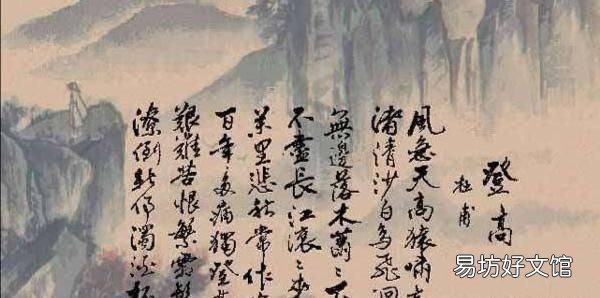 登高
杜甫
風急天高猿嘯
渚清沙白鸟飛迴
無邊落木蕭々下
不盡長江滾々来
萬里悲秋常作
百年多病獨登
艱難苦恨繁霜鬢
潦倒新停濁酒杯
易坊好文馆